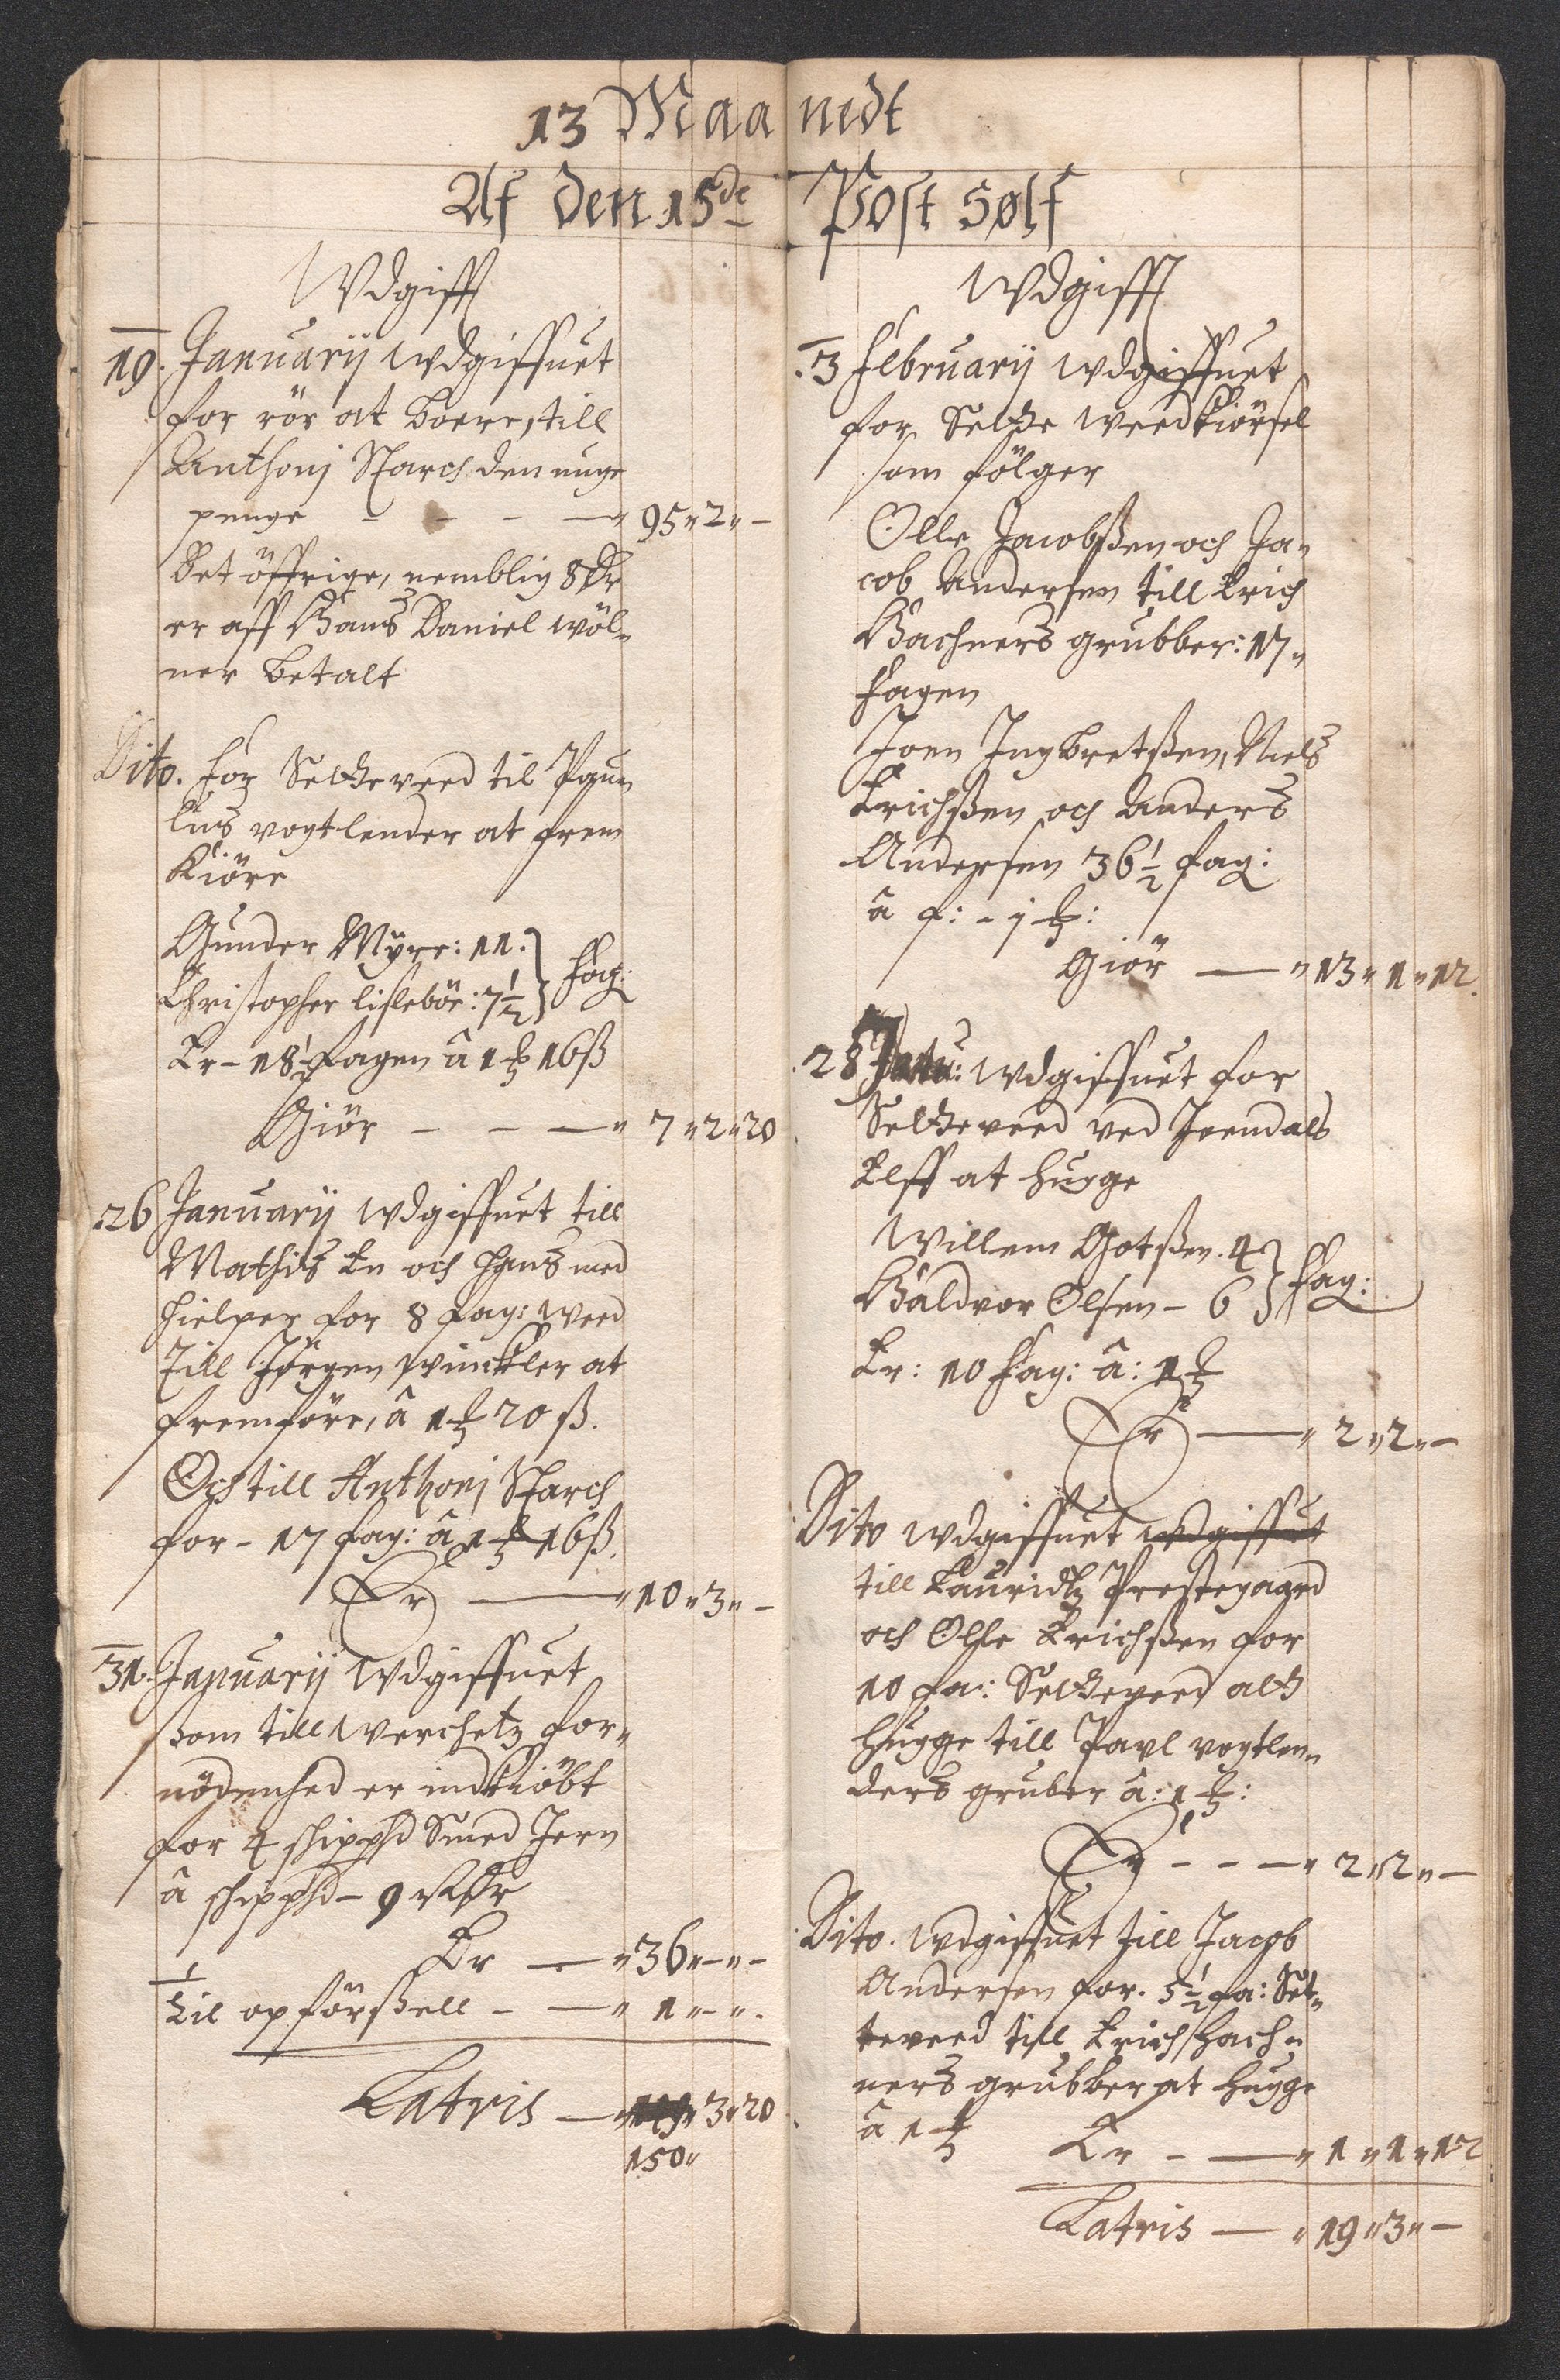 13 Maanedt
Af den 15de Post Sølf
Wdgifft
19. Januarij wdgiffuet
for rör at boere, till
Anthonj Starch den unge
penge - - - — " 95 " 2 " -
Det öffrige, nemblig 8 Dr
er aff Hans Daniel wöl"
ner betalt
Dito. for Setteveed til Pau"
lus vogtlender at frem
Kiöre
Gunder Myre: 11.
Christopher lislebör: 7½ } fag:
Er - 18½ fagen â 1 ℔ 16 ß
Giör - - — " 7 " 2 " 20
26 Januarij wdgiffuet till
Mathis En och Hans med
hielper for 8 fag: weed
till Jörgen winckler at
fremföre, â 1 ℔ 20 ß.
Och till Anthonj Starch
for - 17 fag: â 1 ℔ 16 ß.
Er — " 10 " 3 " -
31. Januarij wdgiffuet
som till werchetz for"
nödenhed er indkiöbt
for 4 schippd Smed Jern
â schippd - 9 Rdr
Er — " 36 " - " -
til opförßell - — " 1 " - " -
Latris — " 3 " 20
150 "
Wdgifft
3 februarij wdgiffuet
for Sette weedkiörsel
som fölger
Olle Jacobßen och Ja"
cob Andersen till Erich
Hachners grubber: 17 "
fagen
Joen Ingbretßen, Niels
Erichßen och Anders
Andersen 36½ fag:
â f: - j ℔:
Giör — " 13 " 1 " 12.
28 Janu: wdgiffuet for
Setteveed ved Joendals
Elff at hugge
Willem Gotßen. 4
Haldvor Olsen - 6 } fag:
Er: 10 fag: â: 1 ℔
Er — " 2 " 2 " -
Dito wdgiffuet wdgiffuet
till Lauridtz Prestegaard
och Olle Erichßen for
10 fa: Setteveed att
hugge till Pavl vogtlen"
ders gruber â: 1 ℔:
Er - - — " 2 " 2 " -
Dito. wdgiffuet till Jacob
Andersen for. 5½ fa: Set"
teveed till Erich hach"
ners grubber at hugge
â 1 ℔ Er - — " 1 " 1 " 12
Latris — " 19 " 3 " -